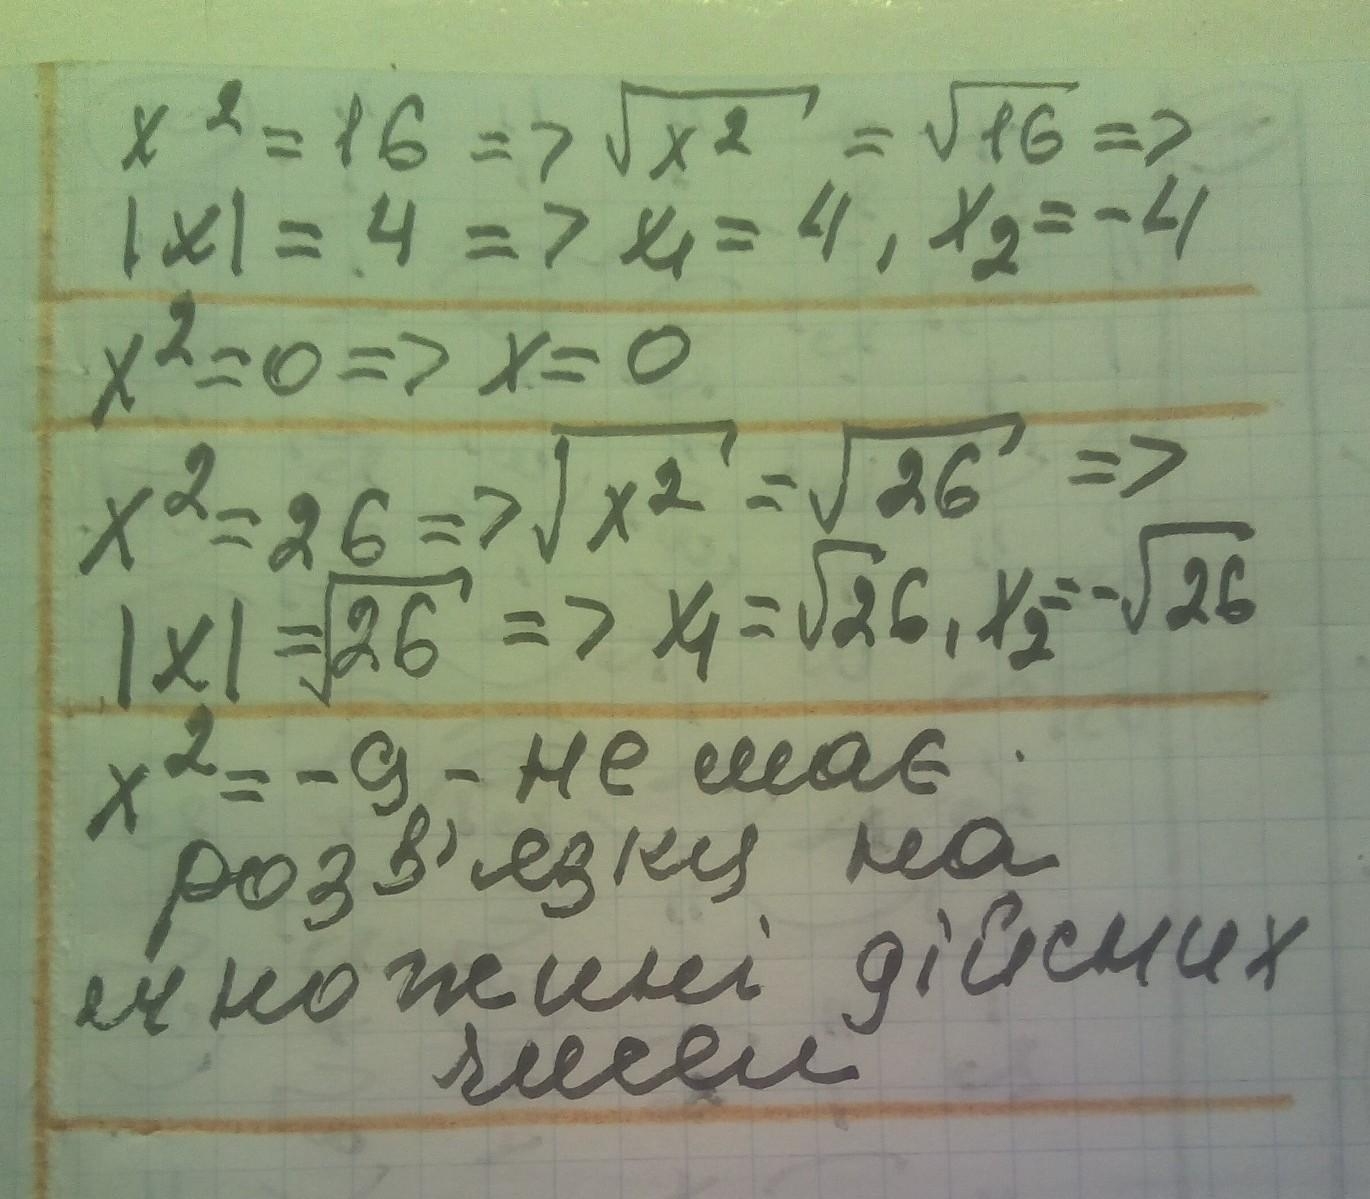 x² = 16 => √x² = √16 =>
|x| = 4 => x₁ = 4, x₂ = -4
x² = 0 => x = 0
x² = 26 => √x² = √26 =>
|x| = √26 => x₁ = √26, x₂ = -√26
x² = -9 - не має
розв'язку на
множині дійсних
чисел